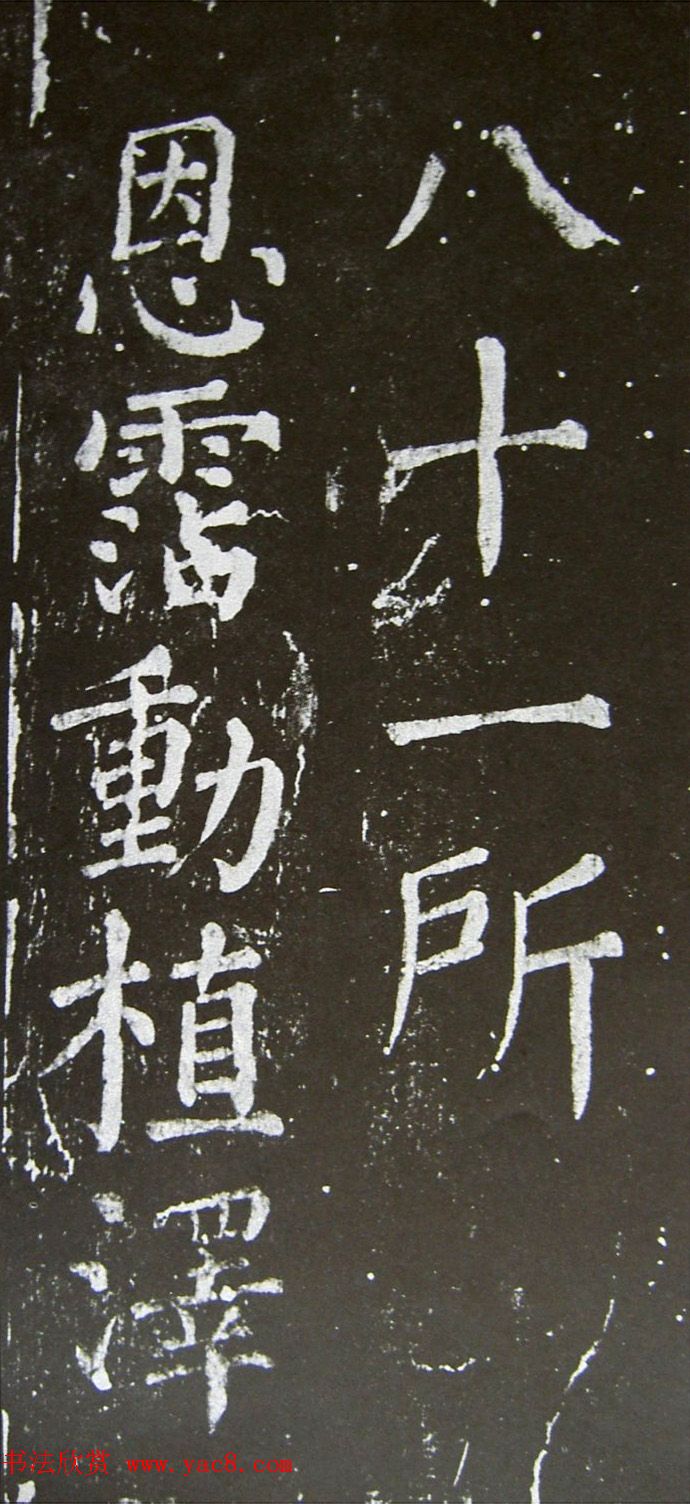 八十一所
恩霑動植澤
书法欣赏 www.yac8.com